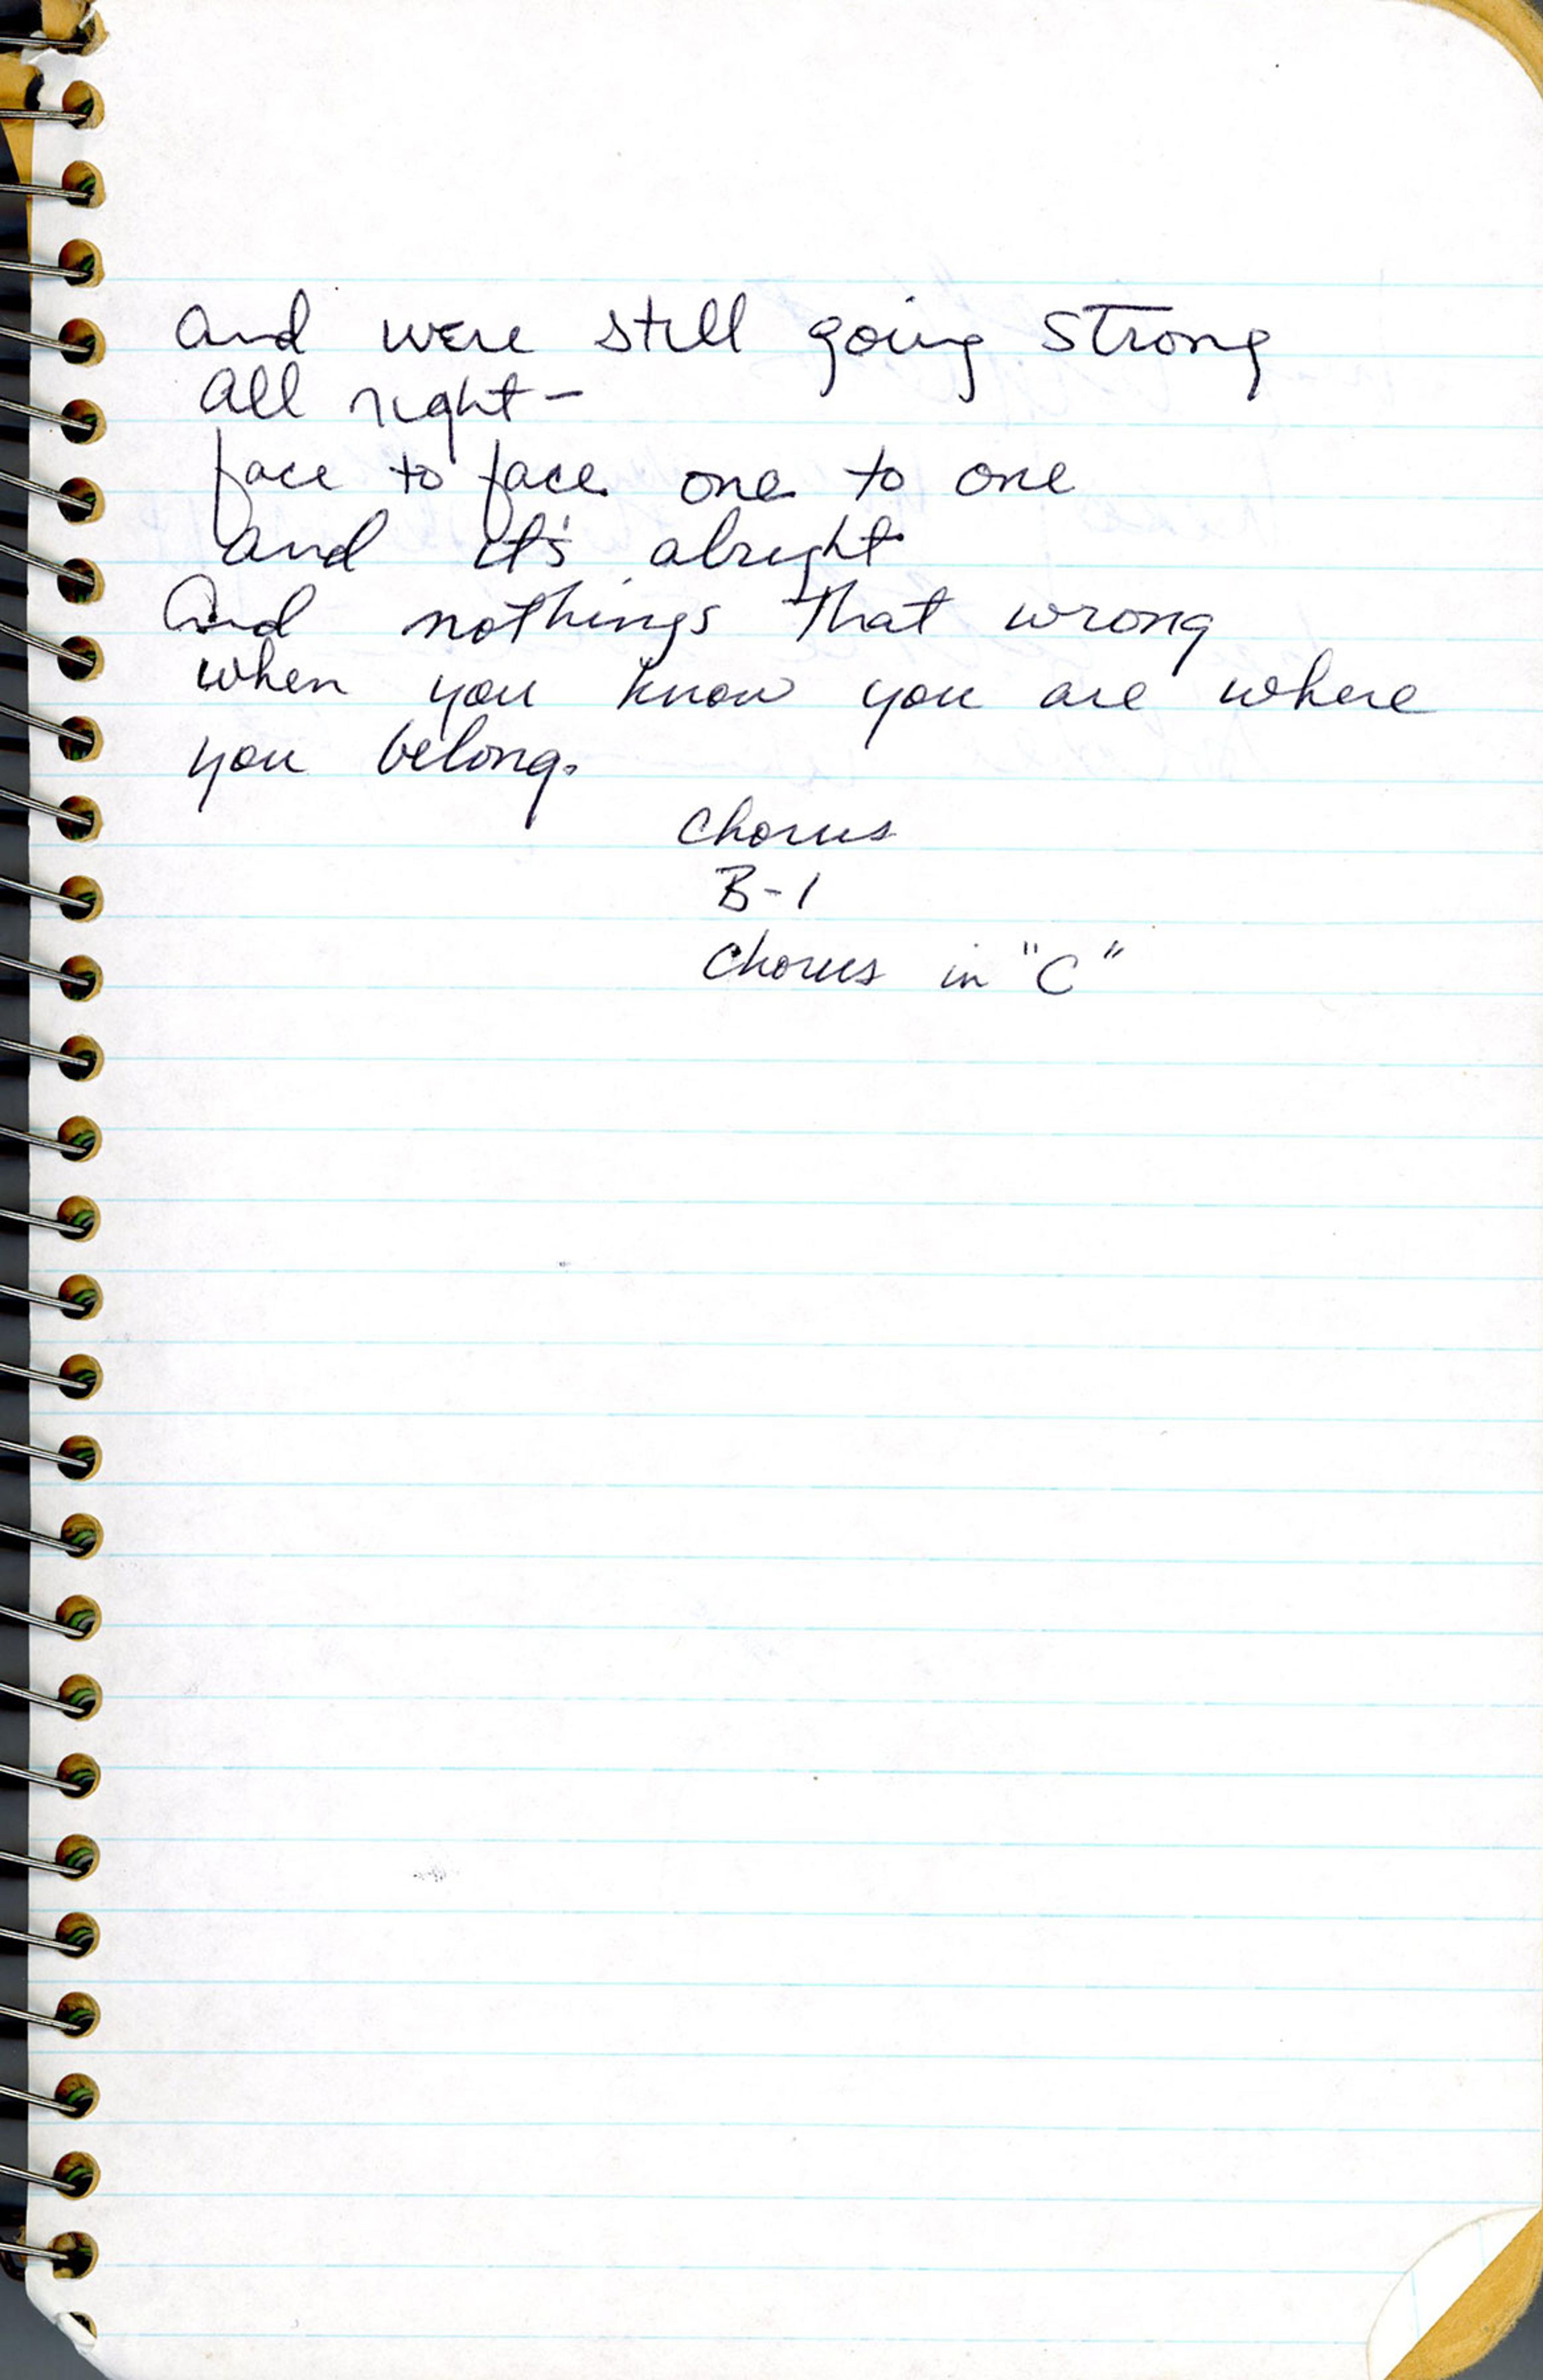 And were still going strong
All right-
face to face one to one
and it's alright
And nothings that wrong
when you know you are where
you belong.
Chorus
B-1
Chorus in "C"